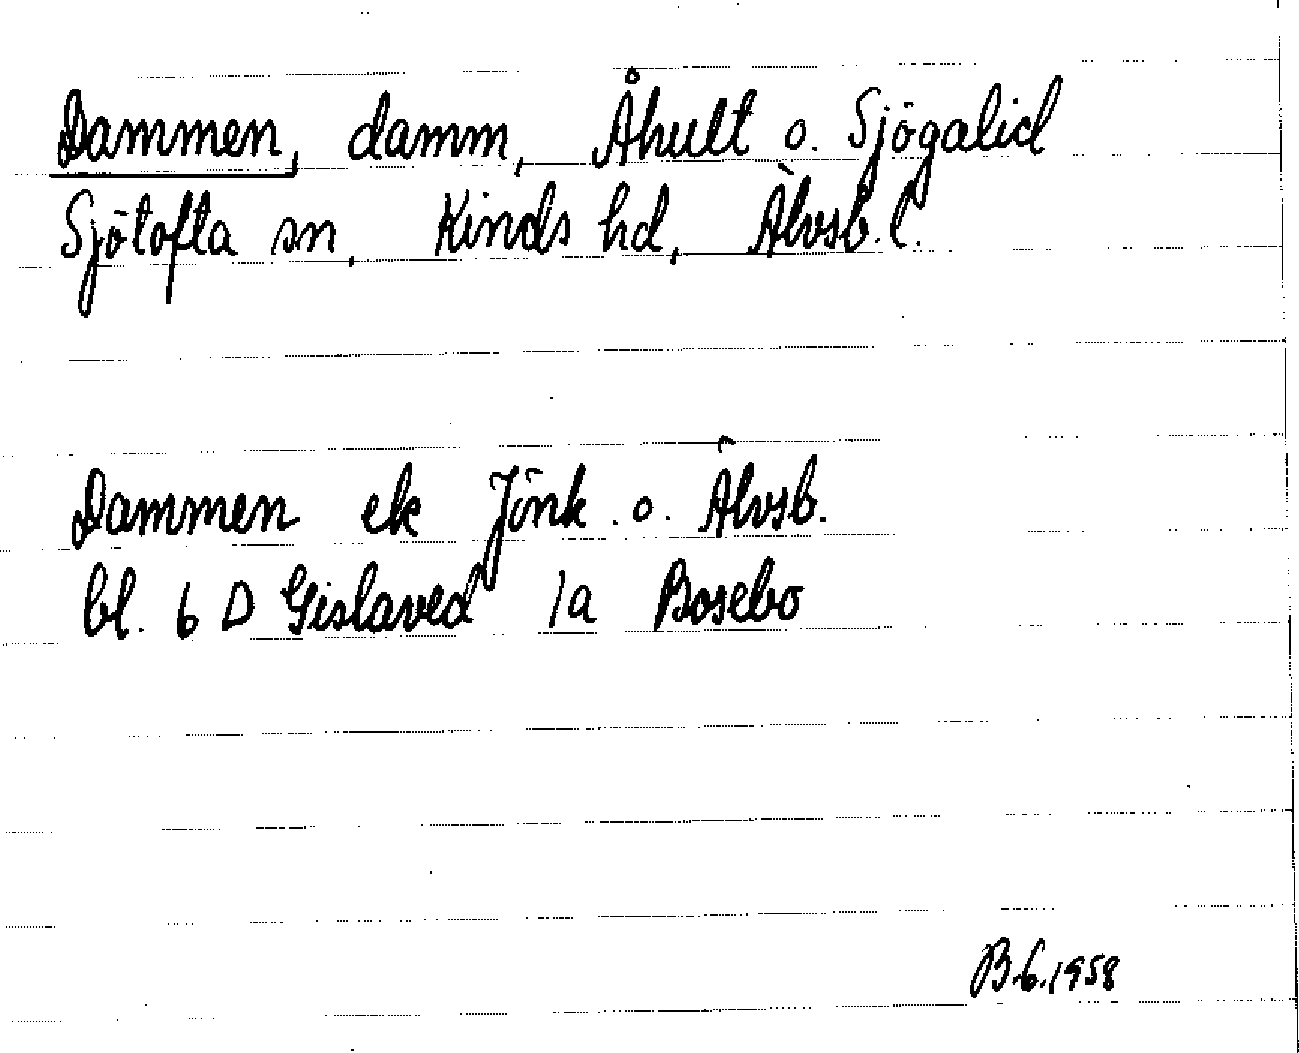 Dammen, damm, Åhult o. Sjögalid
Sjötofta sn, Kinds hd, Älvsb. l.
Dammen ek Jönk. o. Älvsb.
bl. 6 D Gislaved 1a Bosebo
B.6.1958